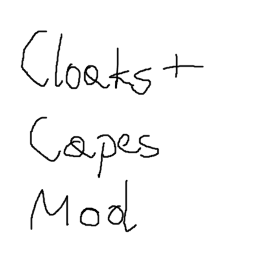 Cloaks+
Capes
Mod